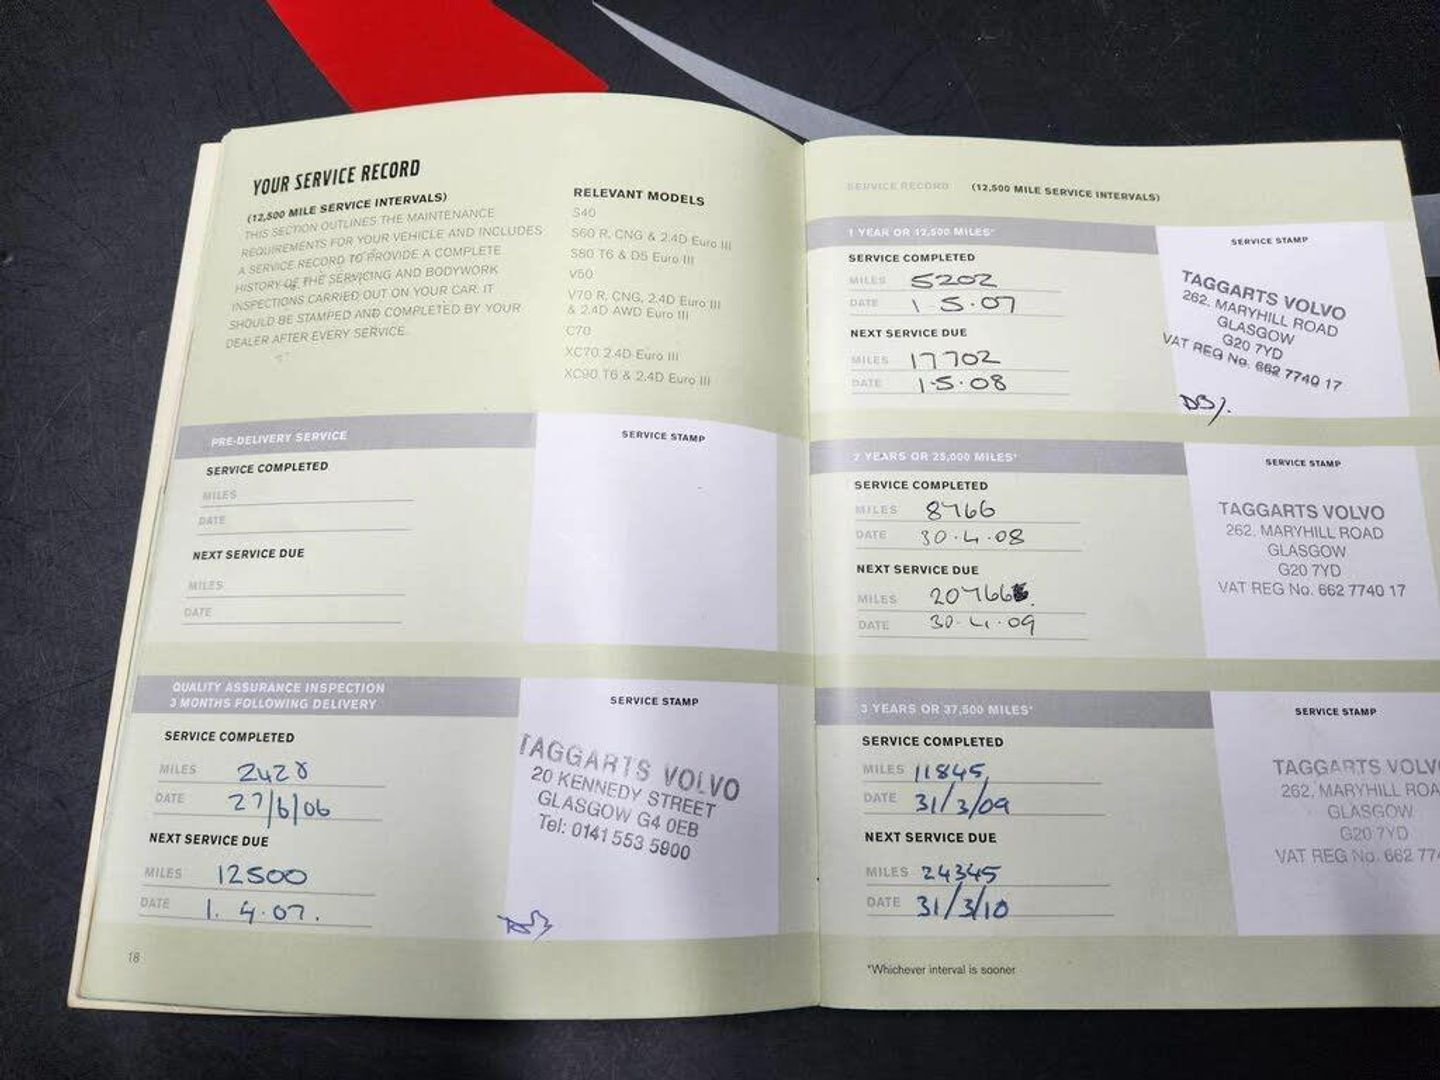 YOUR SERVICE RECORD
(12,500 MILE SERVICE INTERVALS)
THIS SECTION OUTLINES THE MAINTENANCE
REQUIREMENTS FOR YOUR VEHICLE AND INCLUDES
A SERVICE RECORD TO PROVIDE A COMPLETE
HISTORY OF THE SERVICING AND BODYWORK
INSPECTIONS CARRIED OUT ON YOUR CAR. IT
SHOULD BE STAMPED AND COMPLETED BY YOUR
DEALER AFTER EVERY SERVICE.
RELEVANT MODELS
S40
S60 R, CNG & 2.4D Euro III
S80 T6 & D5 Euro III
V50
V70 R, CNG, 2.4D Euro III
& 2.4D AWD Euro III
C70
XC70 2.4D Euro III
XC90 T6 & 2.4D Euro III
PRE-DELIVERY SERVICE
SERVICE COMPLETED
MILES
DATE
NEXT SERVICE DUE
MILES
DATE
SERVICE STAMP
QUALITY ASSURANCE INSPECTION
3 MONTHS FOLLOWING DELIVERY
SERVICE COMPLETED
MILES 2428
DATE 27/6/06
NEXT SERVICE DUE
MILES 12500
DATE 1. 4.07.
SERVICE STAMP
TAGGARTS VOLVO
20 KENNEDY STREET
GLASGOW G4 0EB
Tel: 0141 553 5900
18
SERVICE RECORD (12,500 MILE SERVICE INTERVALS)
1 YEAR OR 12,500 MILES*
SERVICE COMPLETED
MILES 5202
DATE 1 5.07
NEXT SERVICE DUE
MILES 17702
DATE 1.5.08
SERVICE STAMP
TAGGARTS VOLVO
262. MARYHILL ROAD
GLASGOW
G20 7YD
VAT REG No. 662 7740 17
2 YEARS OR 25,000 MILES*
SERVICE COMPLETED
MILES 8766
DATE 30.4.08
NEXT SERVICE DUE
MILES 20766
DATE 30.4.09
SERVICE STAMP
TAGGARTS VOLVO
262. MARYHILL ROAD
GLASGOW
G20 7YD
VAT REG No. 662 7740 17
3 YEARS OR 37,500 MILES*
SERVICE COMPLETED
MILES 11845
DATE 31/3/09
NEXT SERVICE DUE
MILES 24345
DATE 31/3/10
SERVICE STAMP
TAGGARTS VOLV
262. MARYHILL ROA
GLASGOW
G20 7YD
VAT REG No. 662 77
*Whichever interval is sooner